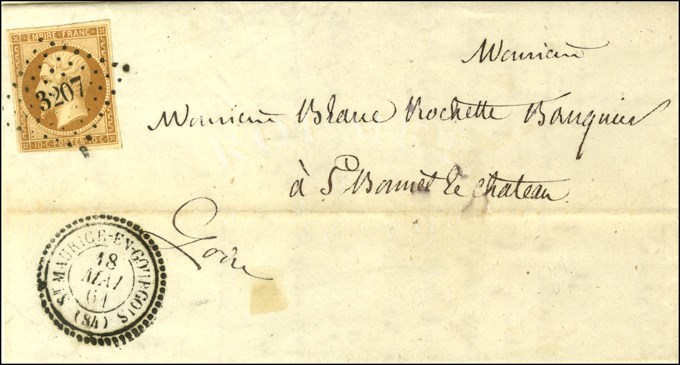 EMPIRE FRANC.
3207
10 C. POSTES 10 C.
Monsieur
Monsieur Blanc Rochette Banquier
à St Bonnet le Chateau
Loire
ST MAURICE-EN-GOURGOIS
18
MAI
61
(84)